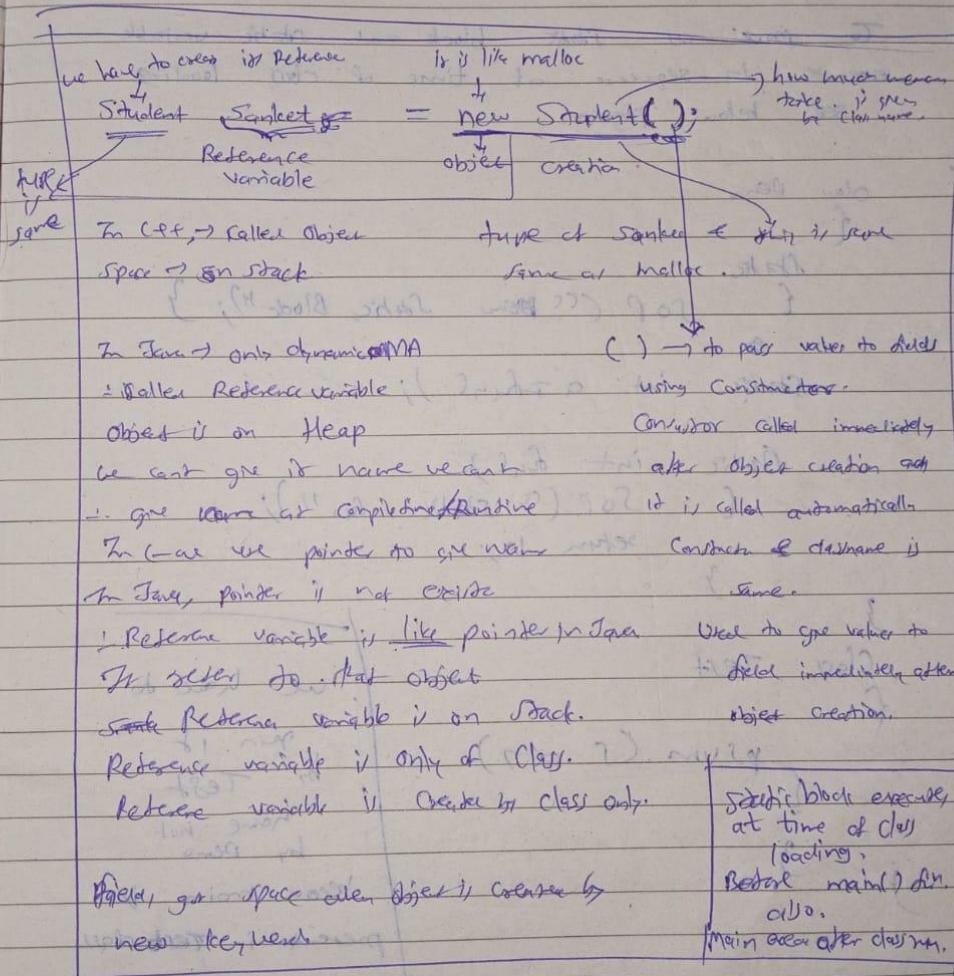 we have to create its Reference
It is like malloc
how much memory
take. is given
by class name.
Student Sanket = new Student();
Reference
variable
object creation
type
is
same
In C++, → Called Object
Space → on stack
type of Sanket & is same
same as malloc.
In Java → only dynamic MA
∴ Called Reference variable
Object is on Heap
we cant give it name we cant
∴ give name at compiletime/Runtime
In C we use pointer to give
In Java, pointer is not exists
∴ Reference variable is like pointer in Java
It refer to that object
Reference variable is on Stack.
Reference variable is only of Class.
Reference variable is Created by class only.
Field, get space when object is created by
new keyword
( ) → to pass values to fields
using Constructor.
Constructor called immediately
after object creation and
it is called automatically
Constructor & classname is
same.
Used to give values to
field immediately after
object creation.
Static block executes
at time of class
loading.
Before main() fun.
also.
Main after class